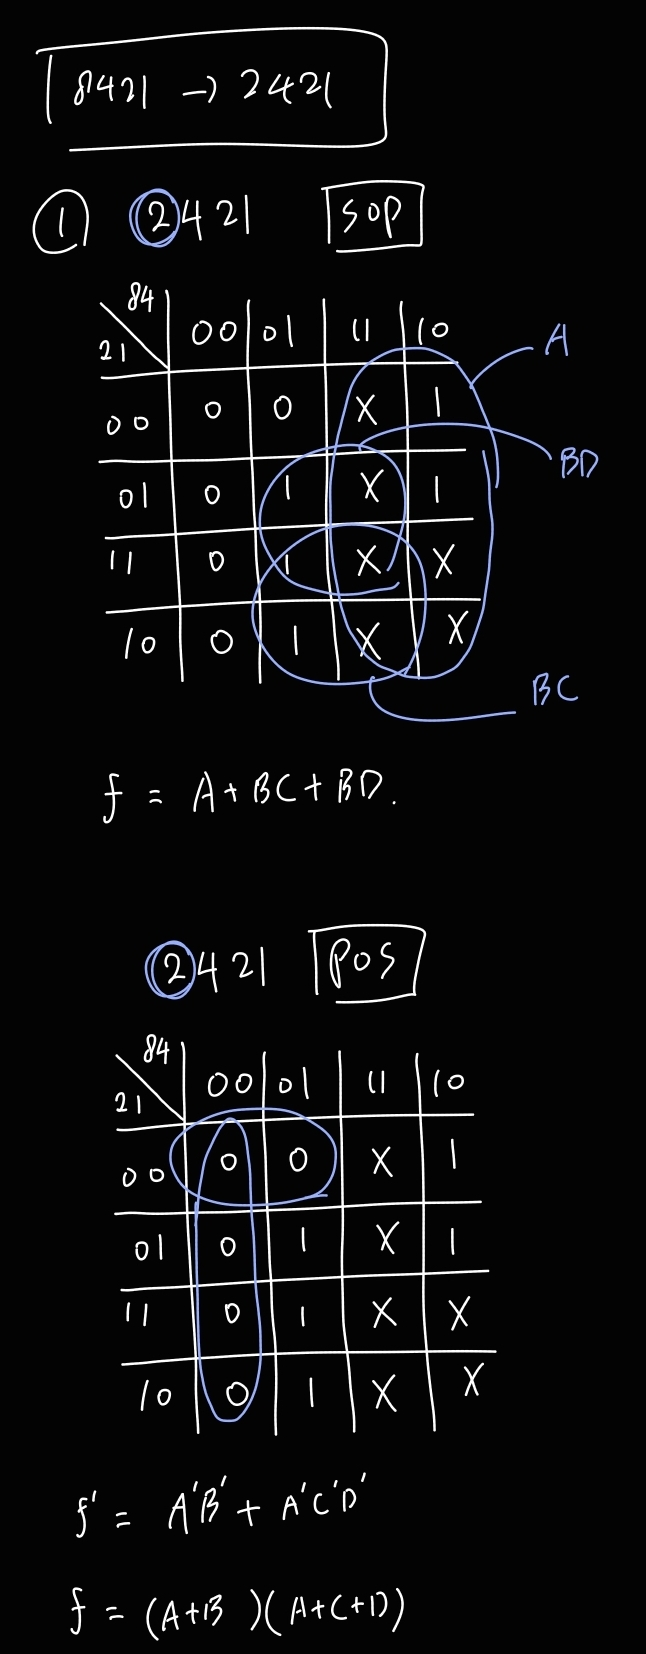 8421 → 2421
① 2421 SOP
84
21
00 01 11 10
A
00 0 0 X 1
BD
01 0 1 X 1
11 0 1 X X
10 0 1 X X
BC
f = A + BC + BD.
2421 POS
84
21
00 01 11 10
00 0 0 X 1
01 0 1 X 1
11 0 1 X X
10 0 1 X X
f' = A'B' + A'C'D'
f = (A+B)(A+C+D)